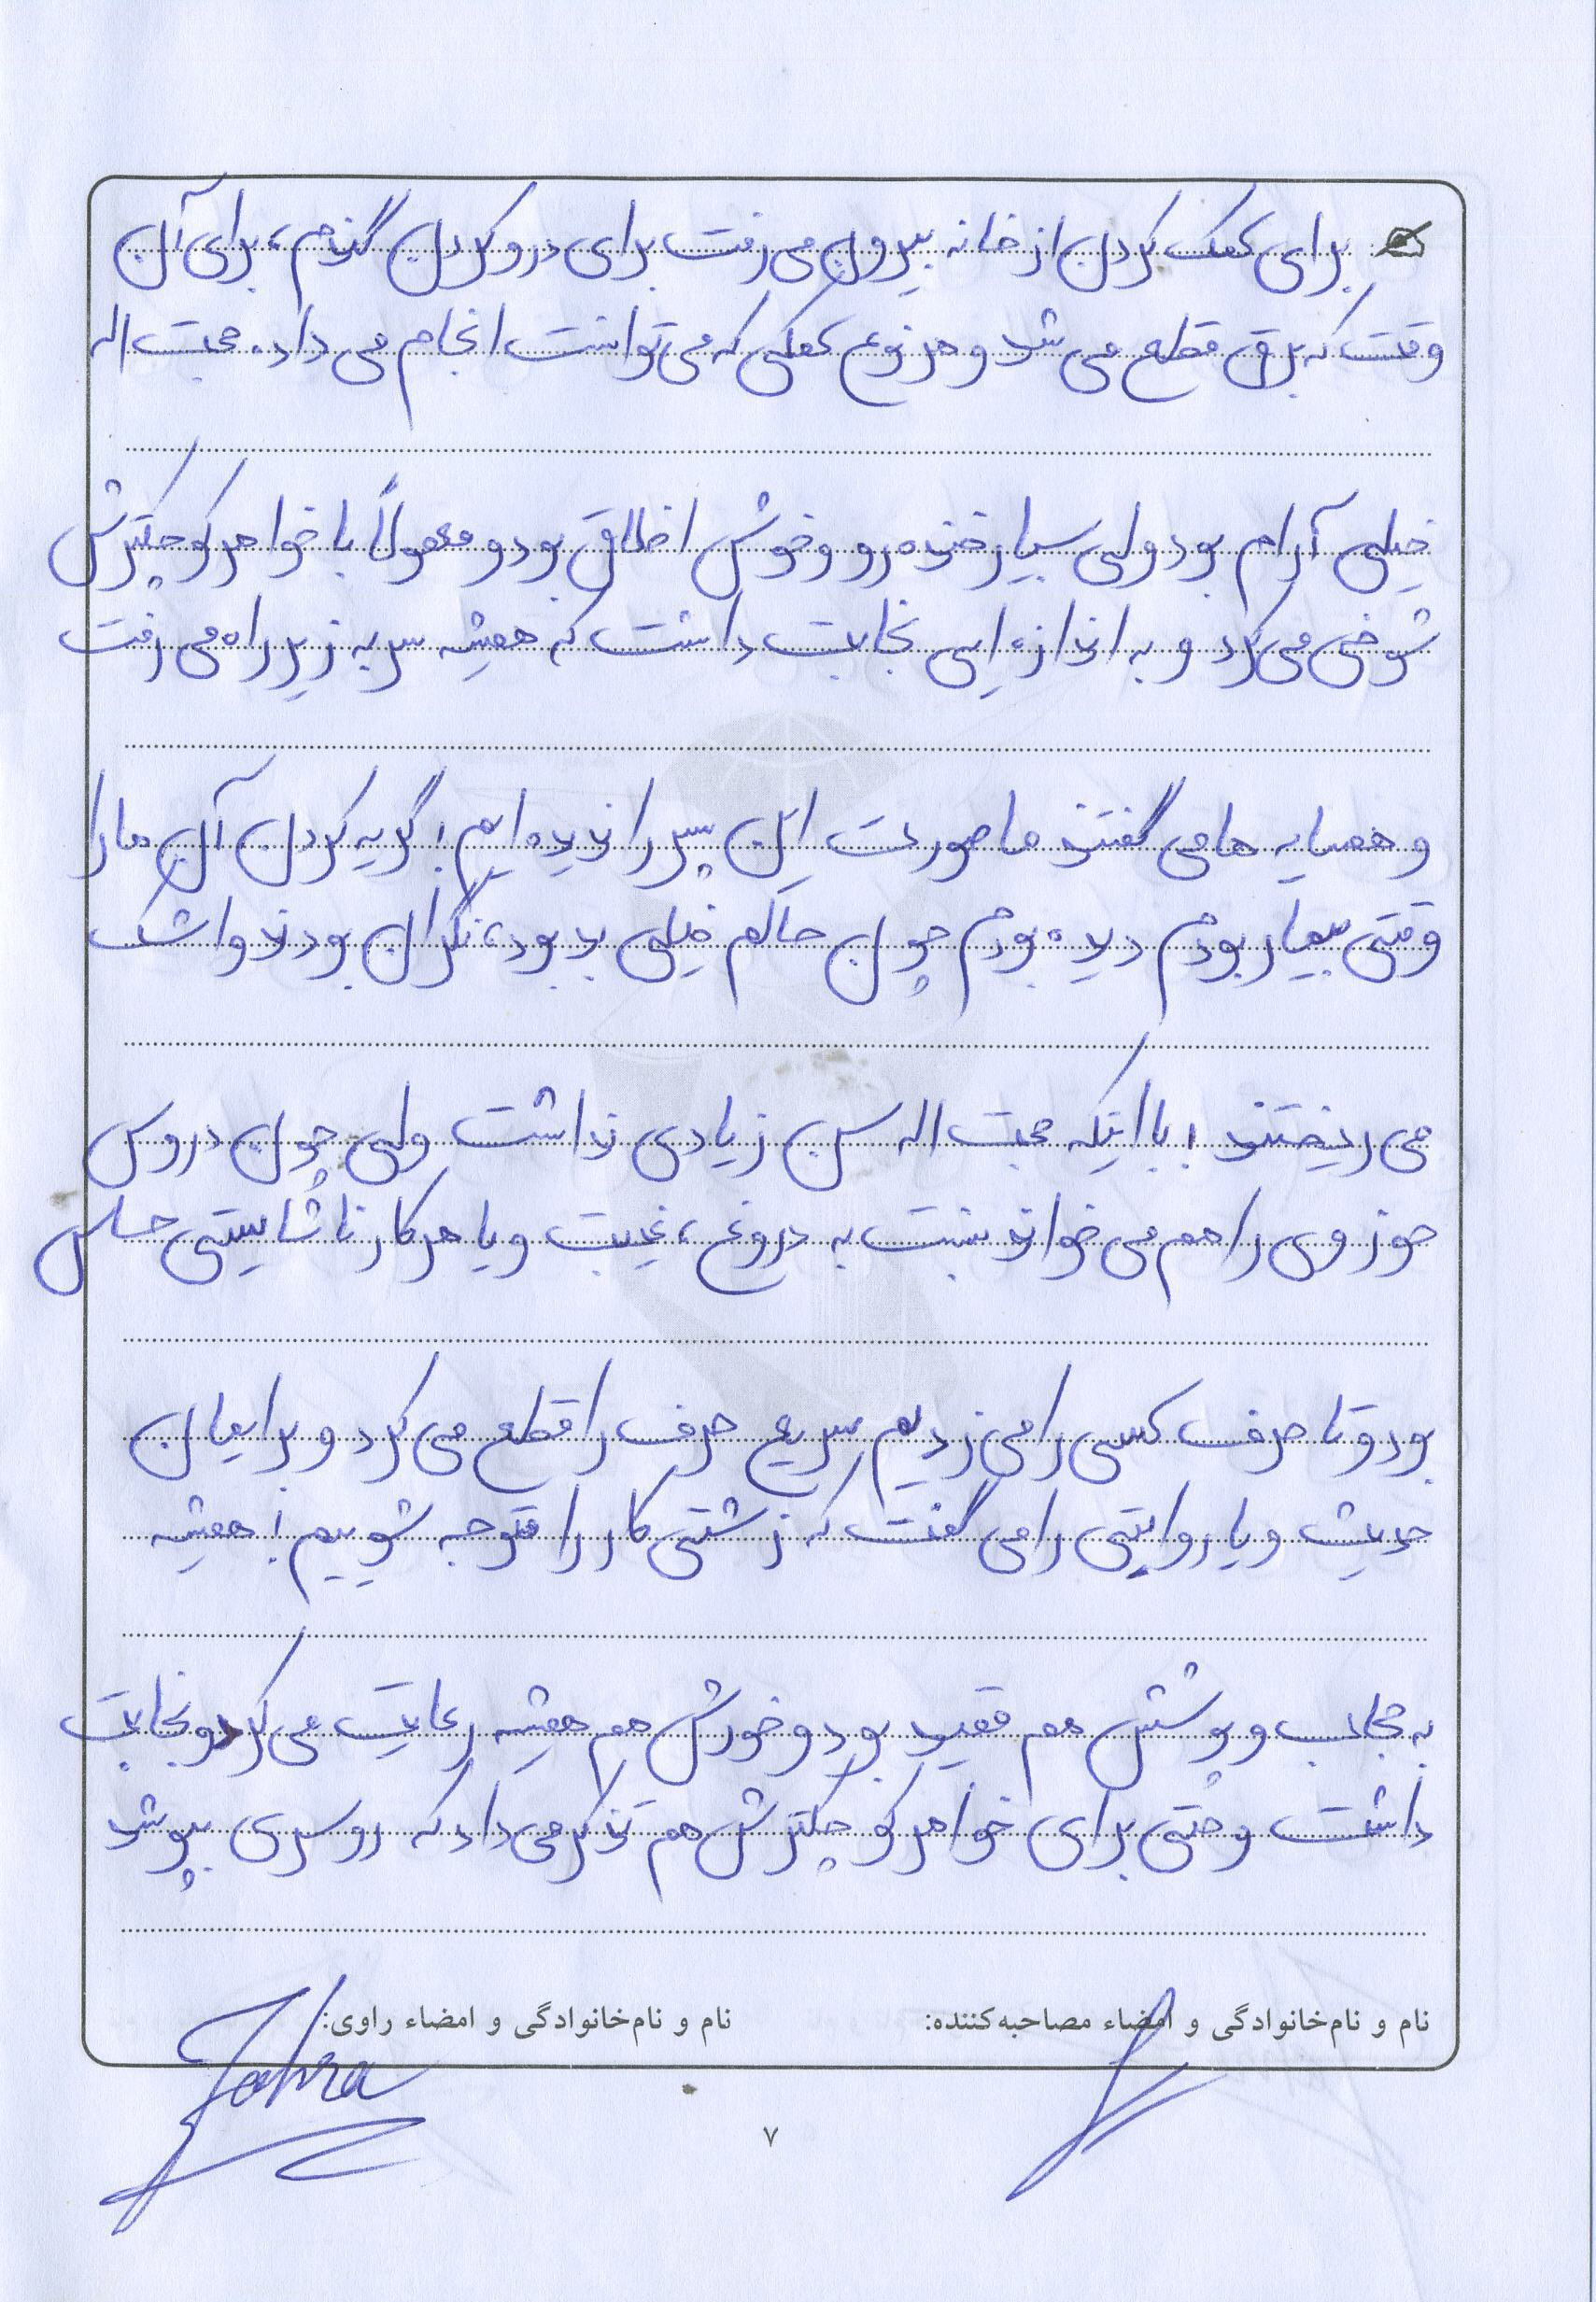 برای کمک کردن از خانه بیرون می رفت برای درو کردن گندم، برای آن
وقت که برق قطع می شد و هر نوع کمکی که می توانست انجام می داد. محبت اله
خیلی آرام بود ولی بسیار خنده رو و خوش اخلاق بود و معمولاً با خواهر کوچکترش
شوخی می کرد و به اندازه ایی نجابت داشت که همیشه سر به زیر راه می رفت
و همسایه ها می گفتند ما صورت این پسر را ندیده ایم! گریه کردن آن ها را
وقتی بیمار بودم دیده بودم چون حالم خیلی بد بود، نگران بودند و اشک
می ریختند! با اینکه محبت اله سن زیادی نداشت ولی چون دروس
حوزوی را هم می خواند نسبت به دروغ، غیبت و یا هر کار ناشایستی حساس
بود و تا حرف کسی را می زدیم سریع حرف را قطع می کرد و برایمان
حدیث و یا روایتی را می گفت که زشتی کار را متوجه شوییم! همیشه
به حجاب و پوشش هم مقید بود و خودش هم همیشه رعایت می کرد و نجابت
داشت و حتی برای خواهر کوچکترش هم تذکر می داد که روسری بپوشد
نام و نام‌خانوادگی و امضاء مصاحبه‌کننده:
نام و نام‌خانوادگی و امضاء راوی:
Zahra
۷